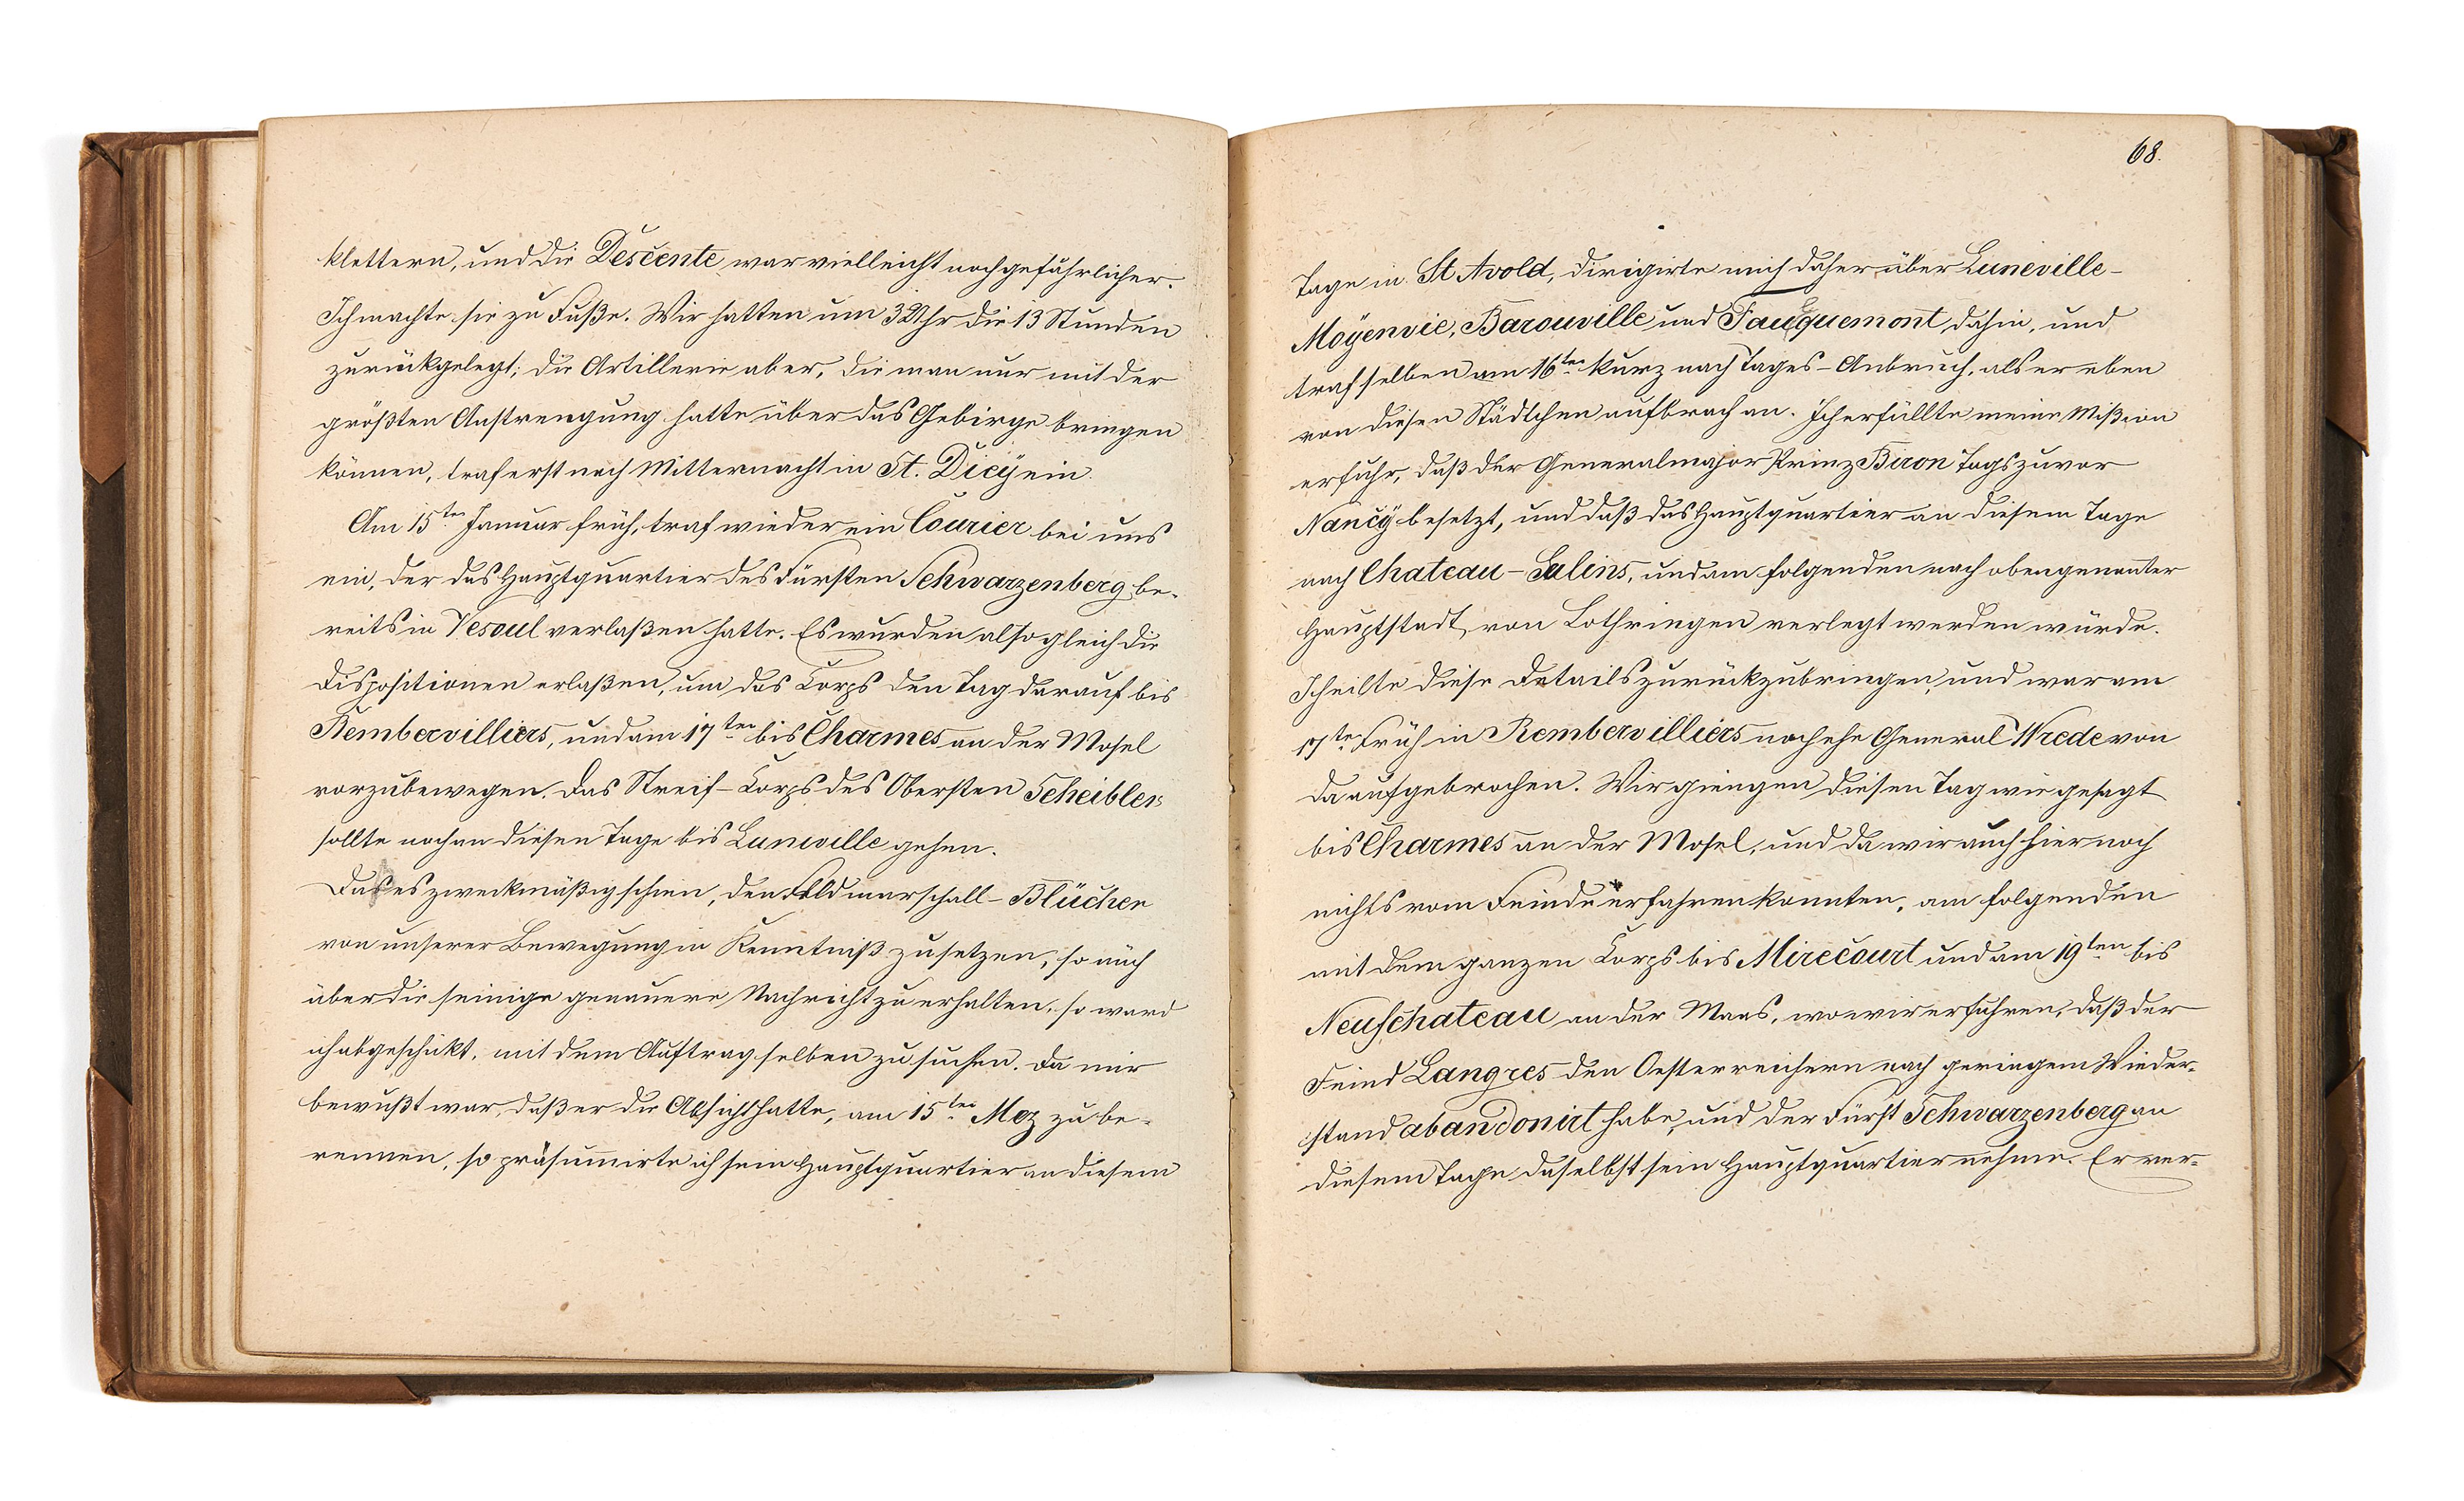 klettern, und die Descente war vielleicht noch gefährlicher.
Ich machte sie zu Fuße. Wir hatten um 3 Uhr die 13 Stunden
zurückgelegt; die Artillerie aber, die man nur mit der
größten Anstrengung hatte über das Gebirge bringen
können, traf erst nach Mitternacht in St. Dieÿ ein.
Am 15ten Januar früh, traf wieder ein Courier bei uns
ein, der das Hauptquartier des Fürsten Schwarzenberg be-
reits in Vesoul verlaßen hatte. Es wurden alsogleich die
Dispositionen erlaßen, um das Corps den Tag darauf bis
Rembervilliers, und am 17ten bis Charmes an der Mosel
vorzubewegen. Das Streif-Corps des Obersten Scheibler
sollte noch an diesen Tage bis Luneville gehen.
Da es zweckmäßig schien, den Feldmarschall Blücher
von unserer Bewegung in Kenntniß zu setzen, so auch
über die seinige genauere Nachricht zu erhalten, so ward
ich abgeschickt, mit dem Auftrag selben zu suchen. Da mir
bewußt war, daß er die Absicht hatte, am 15ten Mez zu be-
rennen, so präsumirte ich sein Hauptquartier an diesem
68.
Tage in St Avold, dirigirte mich daher über Luneville-
Moÿenvic, Barouville und Fauquemont dahin, und
traf selben am 16ten kurz nach Tages-Anbruch, als er eben
von diesen Städtchen aufbrach an. Ich erfüllte meine Mißion
erfuhr, daß der Generalmajor Prinz Biron Tags zuvor
Nancÿ besetzt, und daß das Hauptquartier an diesem Tage
nach Chateau-Salins, und am folgenden nach obengenannter
Hauptstadt von Lothringen verlegt werden würde.
Ich eilte diese Details zurückzubringen, und war am
17te Früh in Rembervilliers noch ehe General Wrede von
da aufgebrochen. Wir giengen diesen Tag wie gesagt
bis Charmes an der Mosel, und da wir auch hier noch
nichts vom Feinde erfahren konnten, am folgenden
mit dem ganzen Corps bis Mirecourt und am 19ten bis
Neufchateau an der Maas, wo wir erfuhren, daß der
Feind Langres den Oesterreichern nach geringem Wieder-
stand abandonirt habe, und der Fürst Schwarzenberg an
diesem Tage daselbst sein Hauptquartier nehme. Er ver-